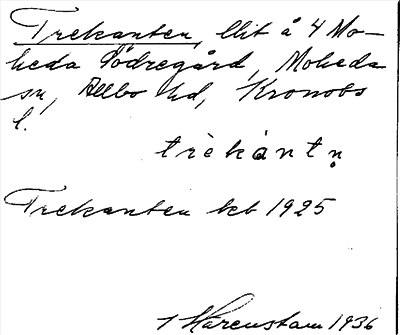 Trekanten, llit å 4 Mo-
heda Södregård, Moheda
sn, Allbo hd, Kronobs
l.
trèkánt​n̥
Trekanten kcb 1925
J Härenstam 1936